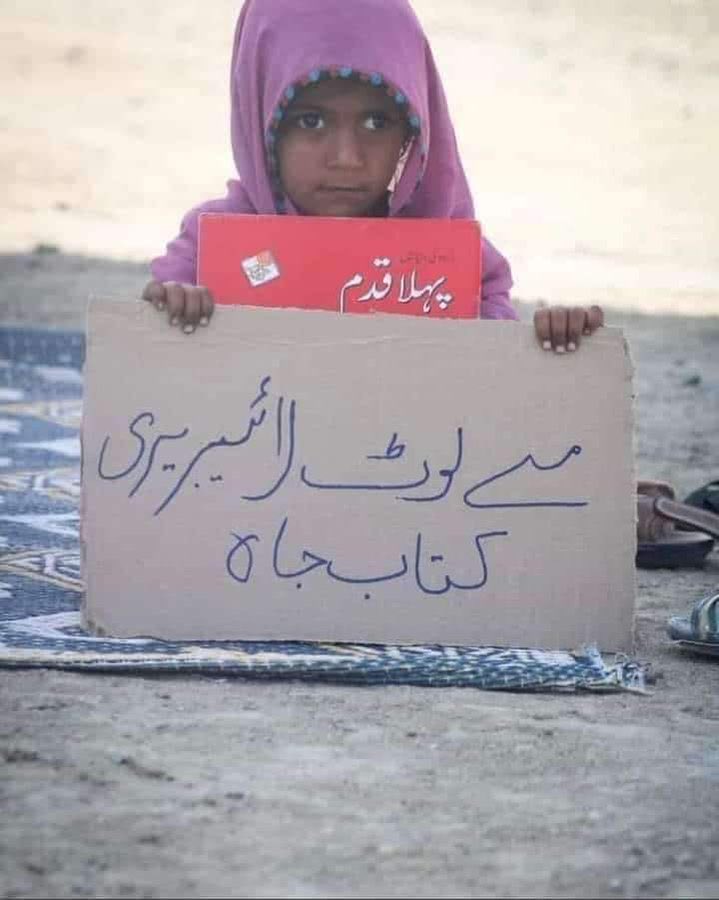 پہلا قدم
مے لوٹ لائیبریری
کتاب جاہ